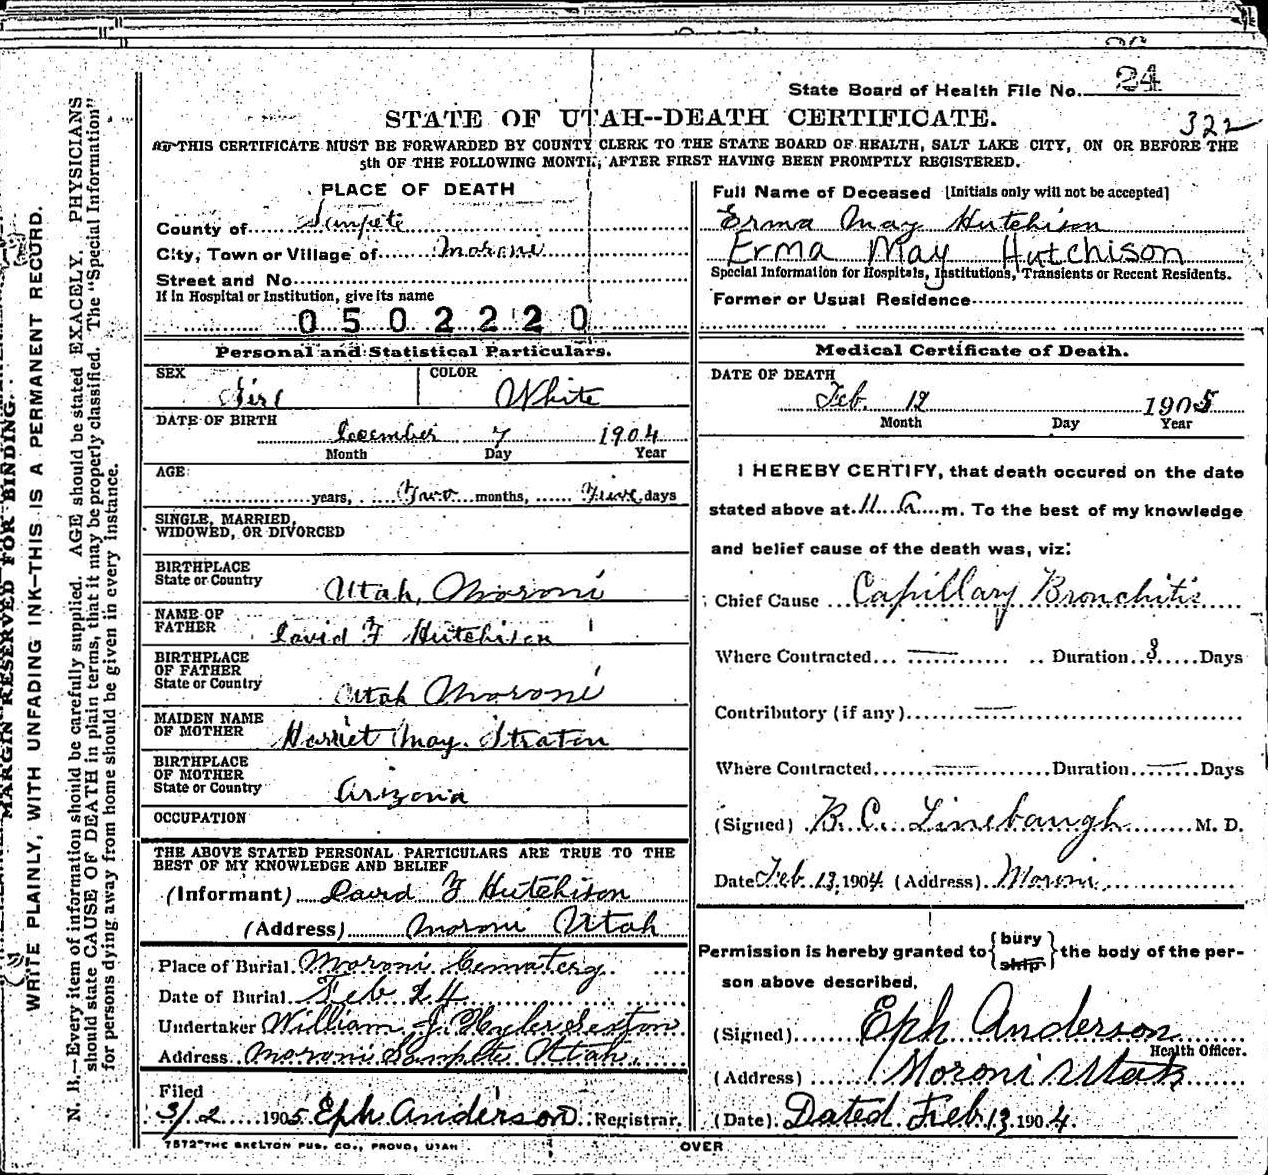 24
State Board of Health File No. 24
STATE OF UTAH--DEATH CERTIFICATE.
322
THIS CERTIFICATE MUST BE FORWARDED BY COUNTY CLERK TO THE STATE BOARD OF HEALTH, SALT LAKE CITY, ON OR BEFORE THE
5th OF THE FOLLOWING MONTH, AFTER FIRST HAVING BEEN PROMPTLY REGISTERED.
MARGIN RESERVED FOR BINDING.
WRITE PLAINLY, WITH UNFADING INK—THIS IS A PERMANENT RECORD.
N. B.—Every item of information should be carefully supplied. AGE should be stated EXACELY. PHYSICIANS
should state CAUSE OF DEATH in plain terms, that it may be properly classified. The "Special Information"
for persons dying away from home should be given in every instance.
PLACE OF DEATH
County of Sanpete
City, Town or Village of Moroni
Street and No.
If in Hospital or Institution, give its name
0502220
Personal and Statistical Particulars.
SEX
Girl
COLOR
White
DATE OF BIRTH
December 7 1904
Month Day Year
AGE
years, Two months, Five days
SINGLE, MARRIED,
WIDOWED, OR DIVORCED
BIRTHPLACE
State or Country
Utah, Moroni
NAME OF
FATHER
David F Hutchison
BIRTHPLACE
OF FATHER
State or Country
Utah Moroni
MAIDEN NAME
OF MOTHER
Harriet May Straton
BIRTHPLACE
OF MOTHER
State or Country
Arizona
OCCUPATION
THE ABOVE STATED PERSONAL PARTICULARS ARE TRUE TO THE
BEST OF MY KNOWLEDGE AND BELIEF
(Informant) David F Hutchison
(Address) Moroni Utah
Place of Burial Moroni Cematery.
Date of Burial Feb 24
Undertaker William J. Sexton
Address Moroni Sanpete Utah.
Filed
3/2 1905 Eph Anderson Registrar.
7572 THE SKELTON PUB. CO., PROVO, UTAH
Full Name of Deceased [Initials only will not be accepted]
Erma May Hutchison
Erma May Hutchison
Special Information for Hospitals, Institutions, Transients or Recent Residents.
Former or Usual Residence
Medical Certificate of Death.
DATE OF DEATH
Feb. 12 1905
Month Day Year
I HEREBY CERTIFY, that death occured on the date
stated above at 11 A m. To the best of my knowledge
and belief cause of the death was, viz:
Chief Cause Capillary Bronchitis
Where Contracted — Duration 3 Days
Contributory (if any) —
Where Contracted — Duration — Days
(Signed) B. C. Linebaugh M. D.
Date Feb 13, 1904 (Address) Moroni
Permission is hereby granted to {bury
ship} the body of the per-
son above described.
(Signed) Eph Anderson
Health Officer.
(Address) Moroni Utah
(Date) Dated Feb 13 1904.
OVER